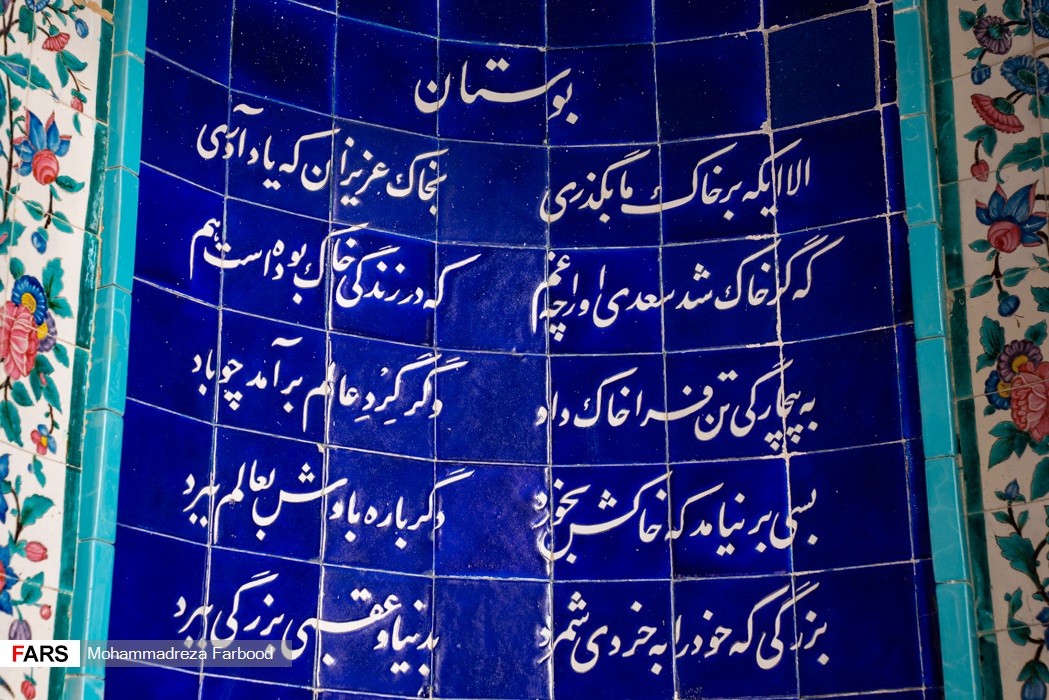 بوستان
الا ایکه بر خاک ما بگذرِی بخاک عزیزان که یاد آوَری
که گر خاک شد سعدی او را چه غم که در زندگی خاک بوده است هم
به بیچارگی تن فرا خاک داد وگر گِرْد عالم برآمد چو باد
بسی بر نیامد که خاکش بخورد دگر باره بادش بعالم ببرد
بزرگی که خود را به خردی شمرد بدنیا و عقبی بزرگی ببرد
FARS Mohammadreza Farbood